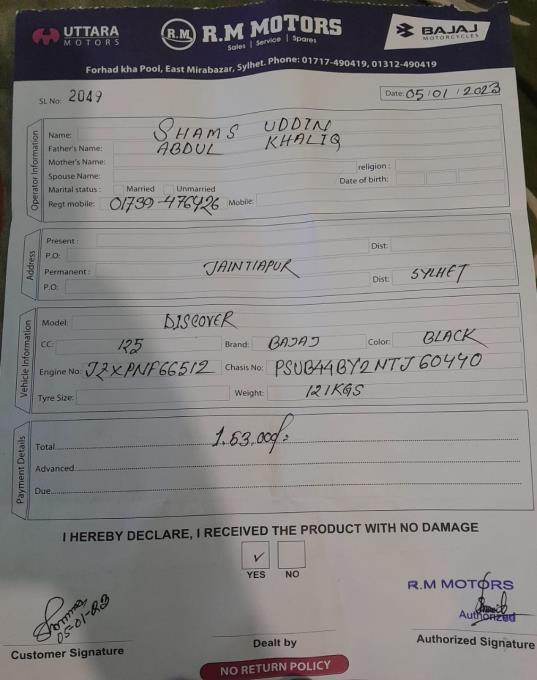 UTTARA MOTORS
R.M
R.M MOTORS
Sales | Service | Spares
BAJAJ MOTORCYCLES
Forhad kha Pool, East Mirabazar, Sylhet. Phone: 01717-490419, 01312-490419
SL No: 2049
Date: 05/01/2023
Operator Information
Name: SHAMS UDDIN
Father's Name: ABDUL KHALIQ
Mother's Name: religion :
Spouse Name: Date of birth:
Marital status : Married Unmarried
Regt mobile: 01739-476426 Mobile:
Address
Present : Dist:
P.O:
Permanent : JAINTIAPUR Dist: SYLHET
P.O:
Vehicle Information
Model: DISCOVER
CC: 125 Brand: BAJAJ Color: BLACK
Engine No: JZXPNF66512 Chasis No: PSUB44BY2NTJ60440
Tyre Size: Weight: 121KGS
Payment Details
Total 1.53.000/=
Advanced
Due
I HEREBY DECLARE, I RECEIVED THE PRODUCT WITH NO DAMAGE
✓
YES NO
R.M MOTORS
Authorized
05-01-23
Customer Signature Dealt by Authorized Signature
NO RETURN POLICY